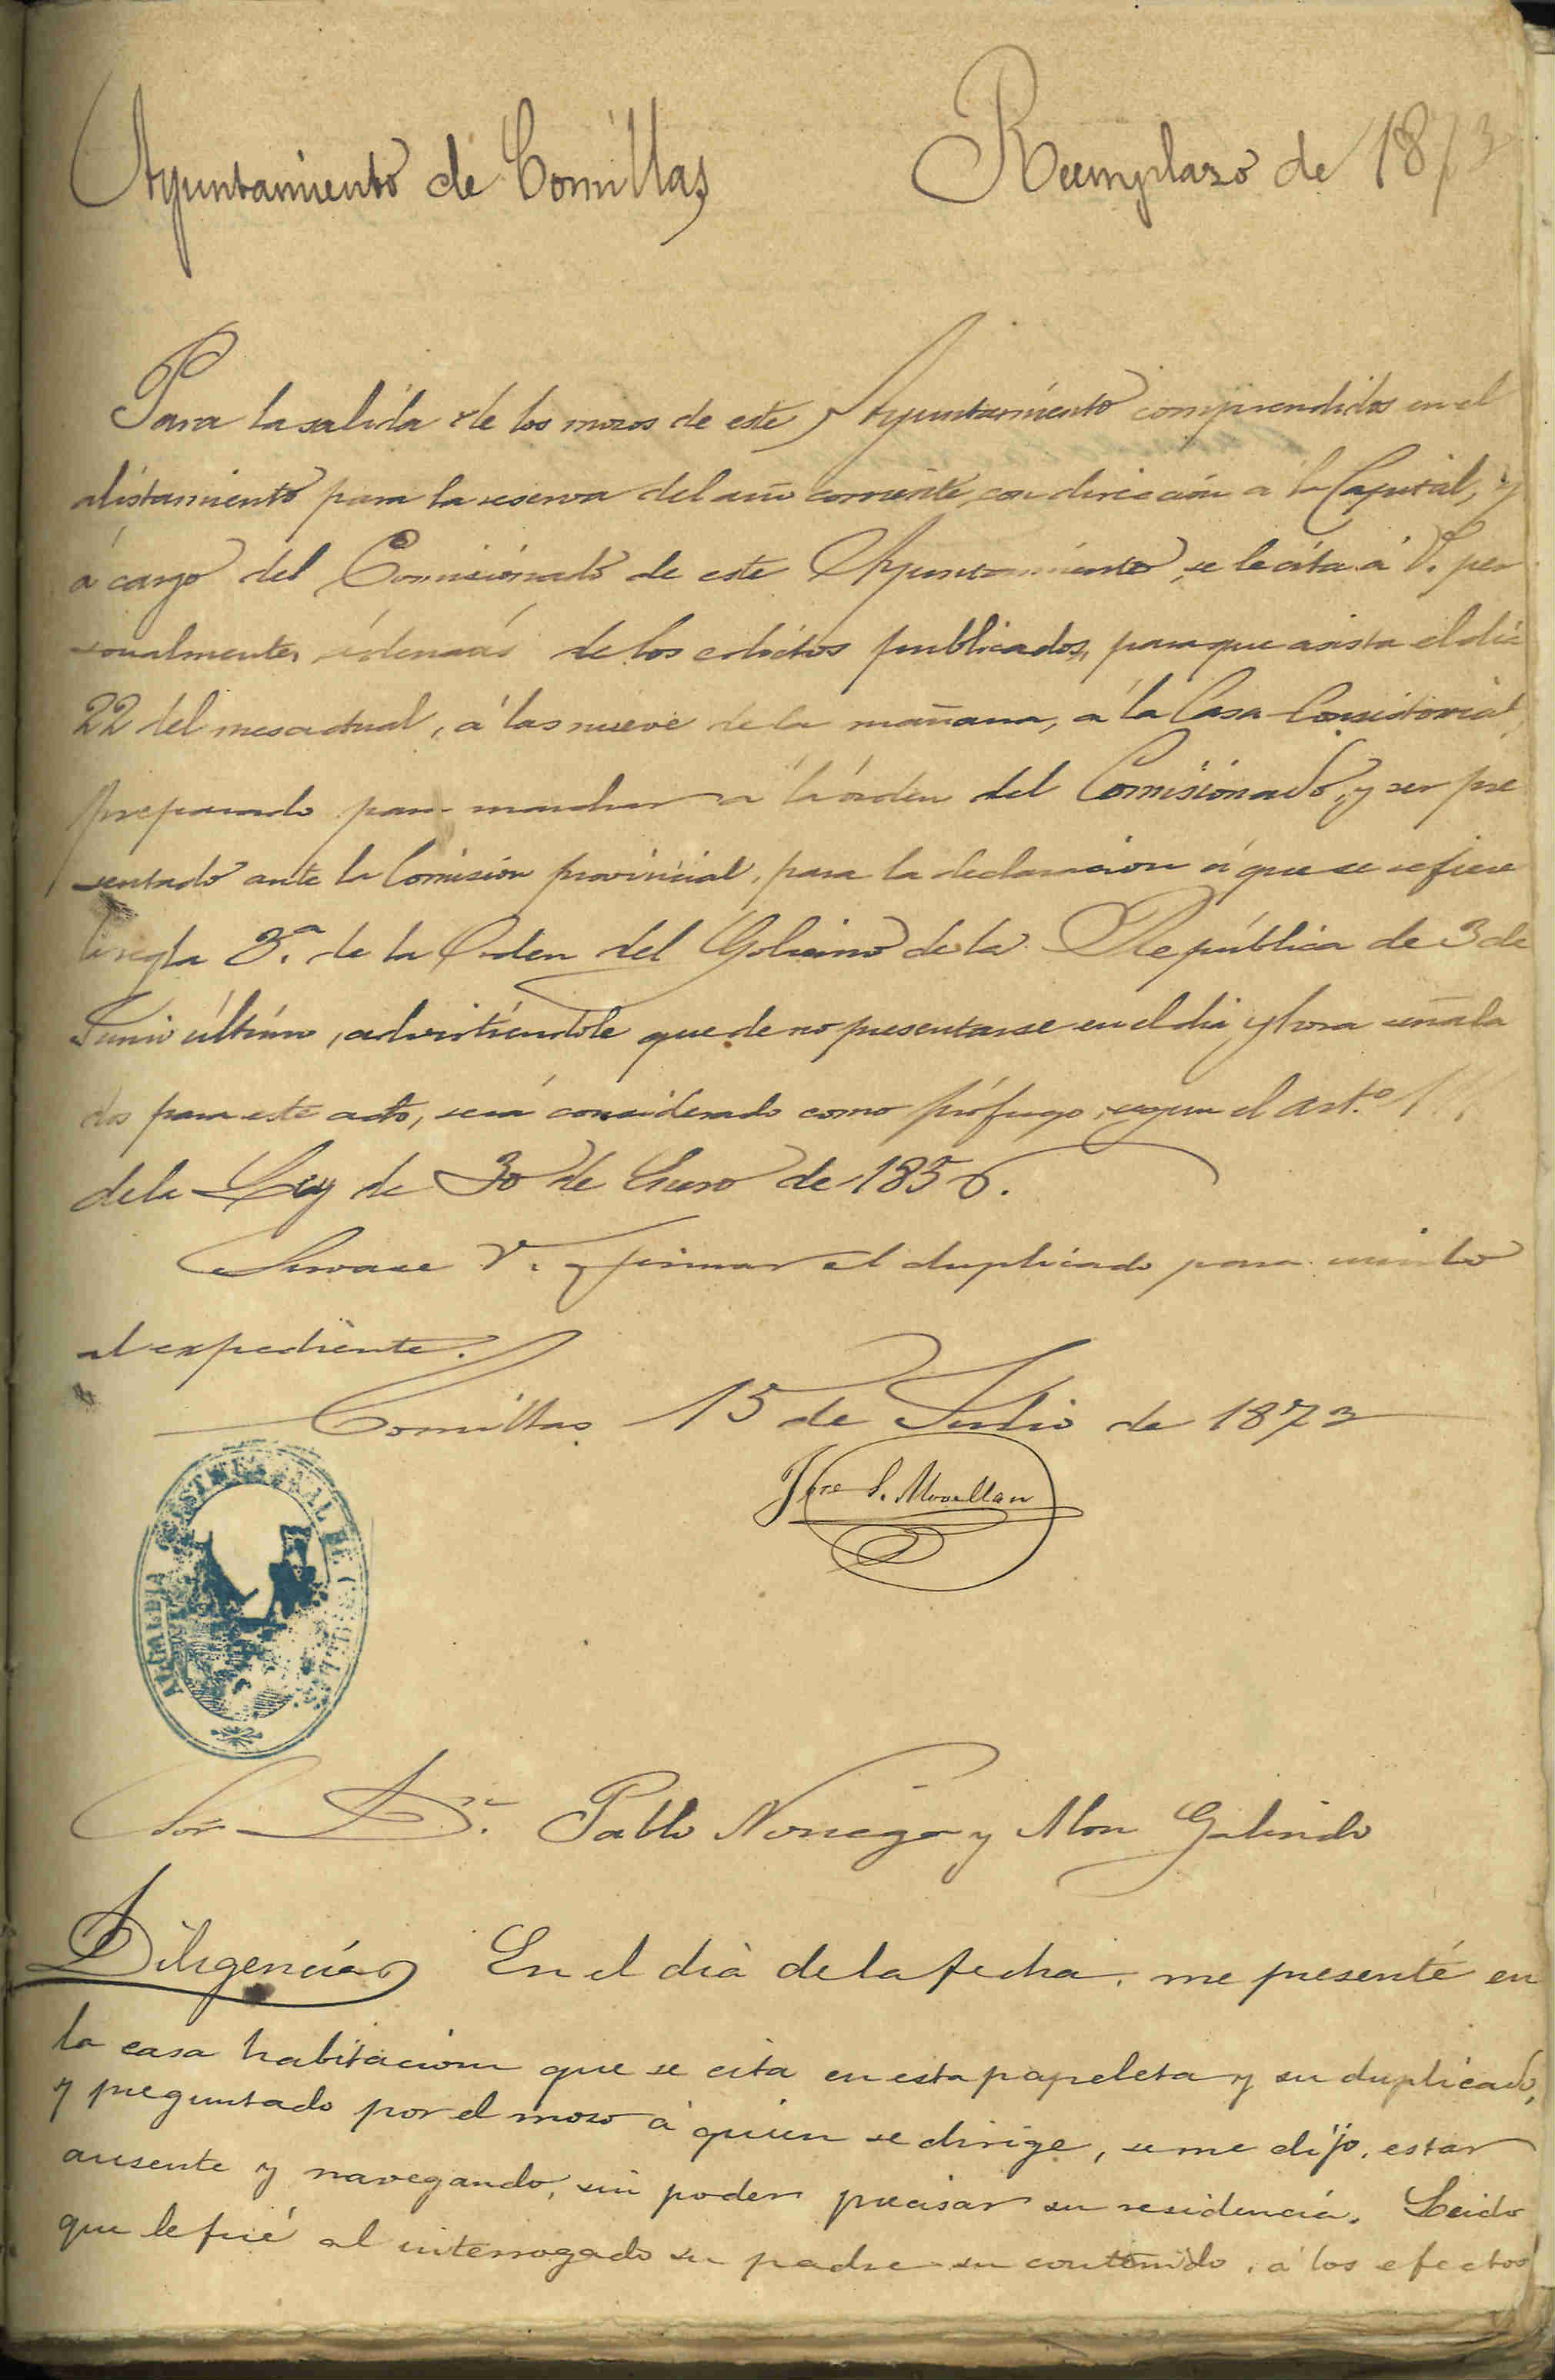 Ayuntamiento de Comillas
Reemplazo de 1873
Para la salida de los mozos de este Ayuntamiento comprendidos en el
alistamiento para la reserva del año corriente, con direccion á la Capital, y
á cargo del Comisionado de este Ayuntamiento, se le cita á V. per
sonalmente, ademas de los edictos publicados, para que asista el dia
22 del mes actual, á las nueve de la mañana, á la Casa Consistorial,
preparado para marchar á la órden del Comisionado, y ser pre
sentado ante la Comision provincial, para la declaracion á que se refiere
la regla 3.ª de la Orden del Gobierno de la República de 3 de
Junio último, advirtiéndole que de no presentarse en el dia y hora señala
dos para este acto, será considerado como prófugo, segun el art.º
de la Ley de 30 de Enero de 1856.
Sirvase V. firmar el duplicado para unirlo
al expediente.
Comillas 15 de Julio de 1873
S. Movellan
ALCALDIA CONSTITUCIONAL DE COMILLAS
Sor. Dn. Pablo Noriega y Mon Galindo
Diligencia En el dia de la fecha, me presenté en
la casa habitacion que se cita en esta papeleta y su duplicado,
y preguntado por el mozo á quien se dirige, se me dijo, estar
ausente y navegando, sin poder precisar su residencia. Leido
que le fué al interrogado su padre su contenido, á los efectos